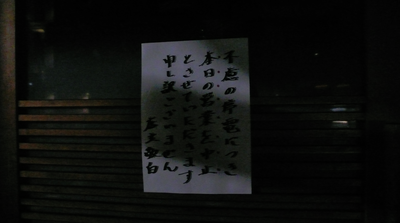 不慮の停電につき
本日の営業を中止
とさせていただきます
申し訳ございません
店主敬白